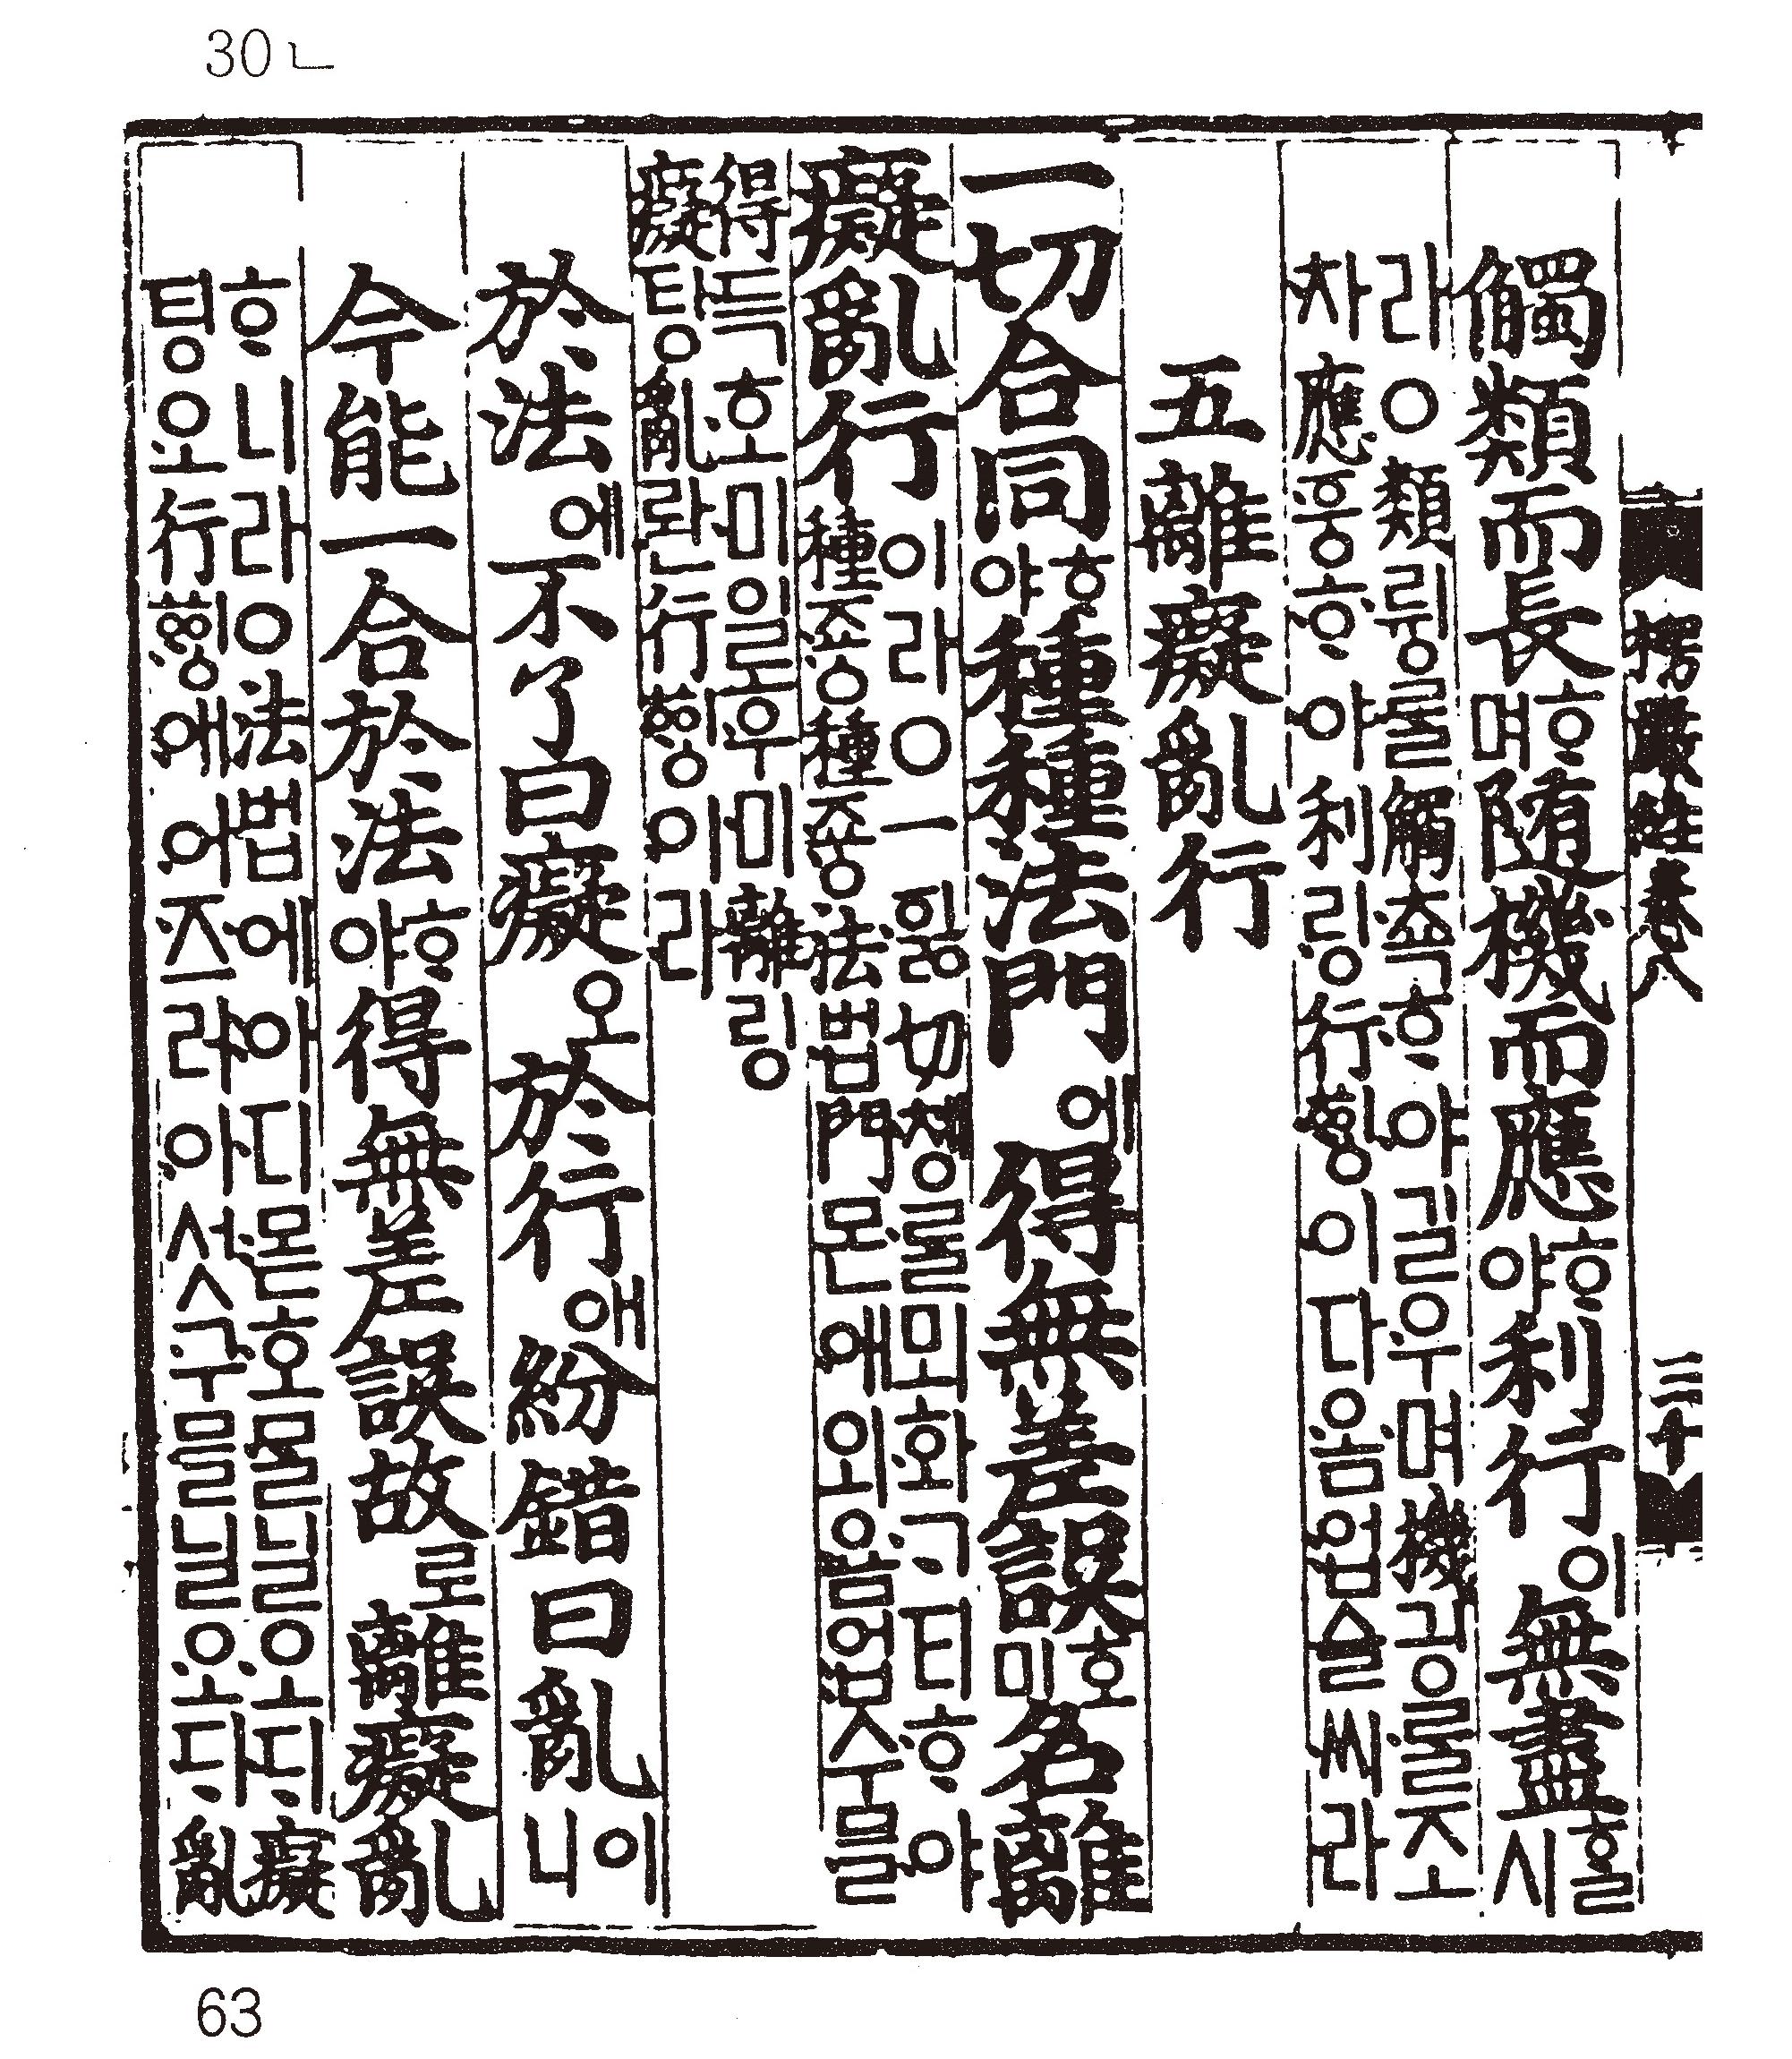 30ㄴ
楞嚴經卷八 三十
觸類而長ᄒᆞ며隨機而應ᄒᆞ야利行이無盡홀시
라○類륑ᄅᆞᆯ觸쵹ᄒᆞ야길우며機긩ᄅᆞᆯ조
차應ᅙᅳᆼᄒᆞ야利링行ᅘᆡᆼ이다옴업슬씨라
五離癡亂行
一切合同ᄒᆞ야種種法門에得無差誤호미名離
癡亂行이라○一ᅙᅵᇙ切촁ᄅᆞᆯ뫼화ᄀᆞ티ᄒᆞ야
種죵種죵法법門몬애외욤업수믈
得득호미일후미離링
癡팅亂롼行ᅘᆡᆼ이라
於法에不了曰癡오於行애紛錯曰亂이니
今能一合於法ᄒᆞ야得無差誤故로離癡亂
ᄒᆞ니라○法법에아디몯호ᄆᆞᆯ닐오ᄃᆡ癡
팅오行ᅘᆡᆼ애어즈랴아섯구믈닐오ᄃᆡ亂
63